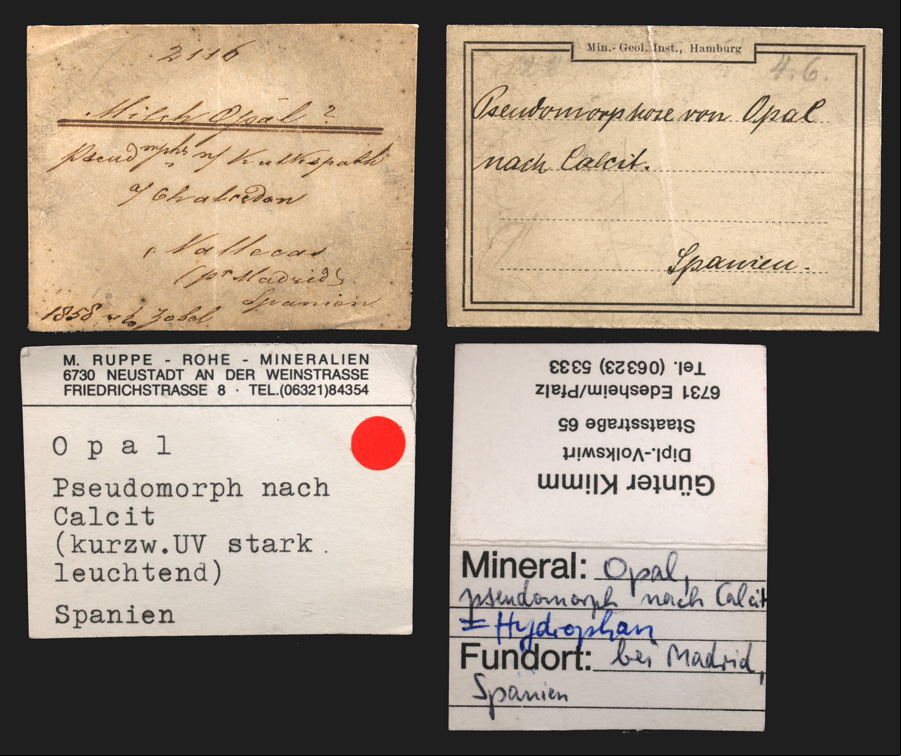 2116
Milch Opal ?
pseudmphs n/ Kalkspath
a/ Chalcedon
Vallecas
(pr Madrid)
Spanien
1858 Zobel
Min.-Geol. Inst., Hamburg
4.6.
Pseudomorphose von Opal
nach Calcit.
Spanien.
M. RUPPE - ROHE - MINERALIEN
6730 NEUSTADT AN DER WEINSTRASSE
FRIEDRICHSTRASSE 8 · TEL.(06321)84354
Opal
Pseudomorph nach
Calcit
(kurzw.UV stark
leuchtend)
Spanien
Günter Klimm
Dipl.-Volkswirt
Staatsstraße 65
6731 Edesheim/Pfalz
Tel. (06323) 5533
Mineral: Opal,
pseudomorph nach Calcit
= Hydrophan
Fundort: bei Madrid,
Spanien